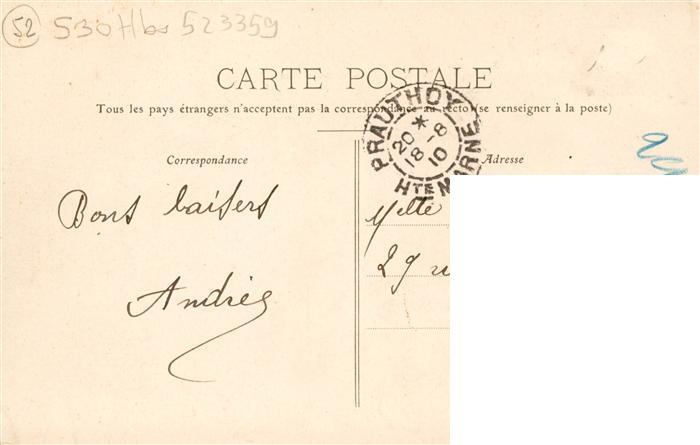 52 530Hbs 523359
CARTE POSTALE
Tous les pays étrangers n'acceptent pas la correspondance au recto (se renseigner à la poste)
PRAUTHOY
20 * 18-8 10
HTE MARNE
Correspondance
Adresse
Bons baisers
Andrée
Melle
29